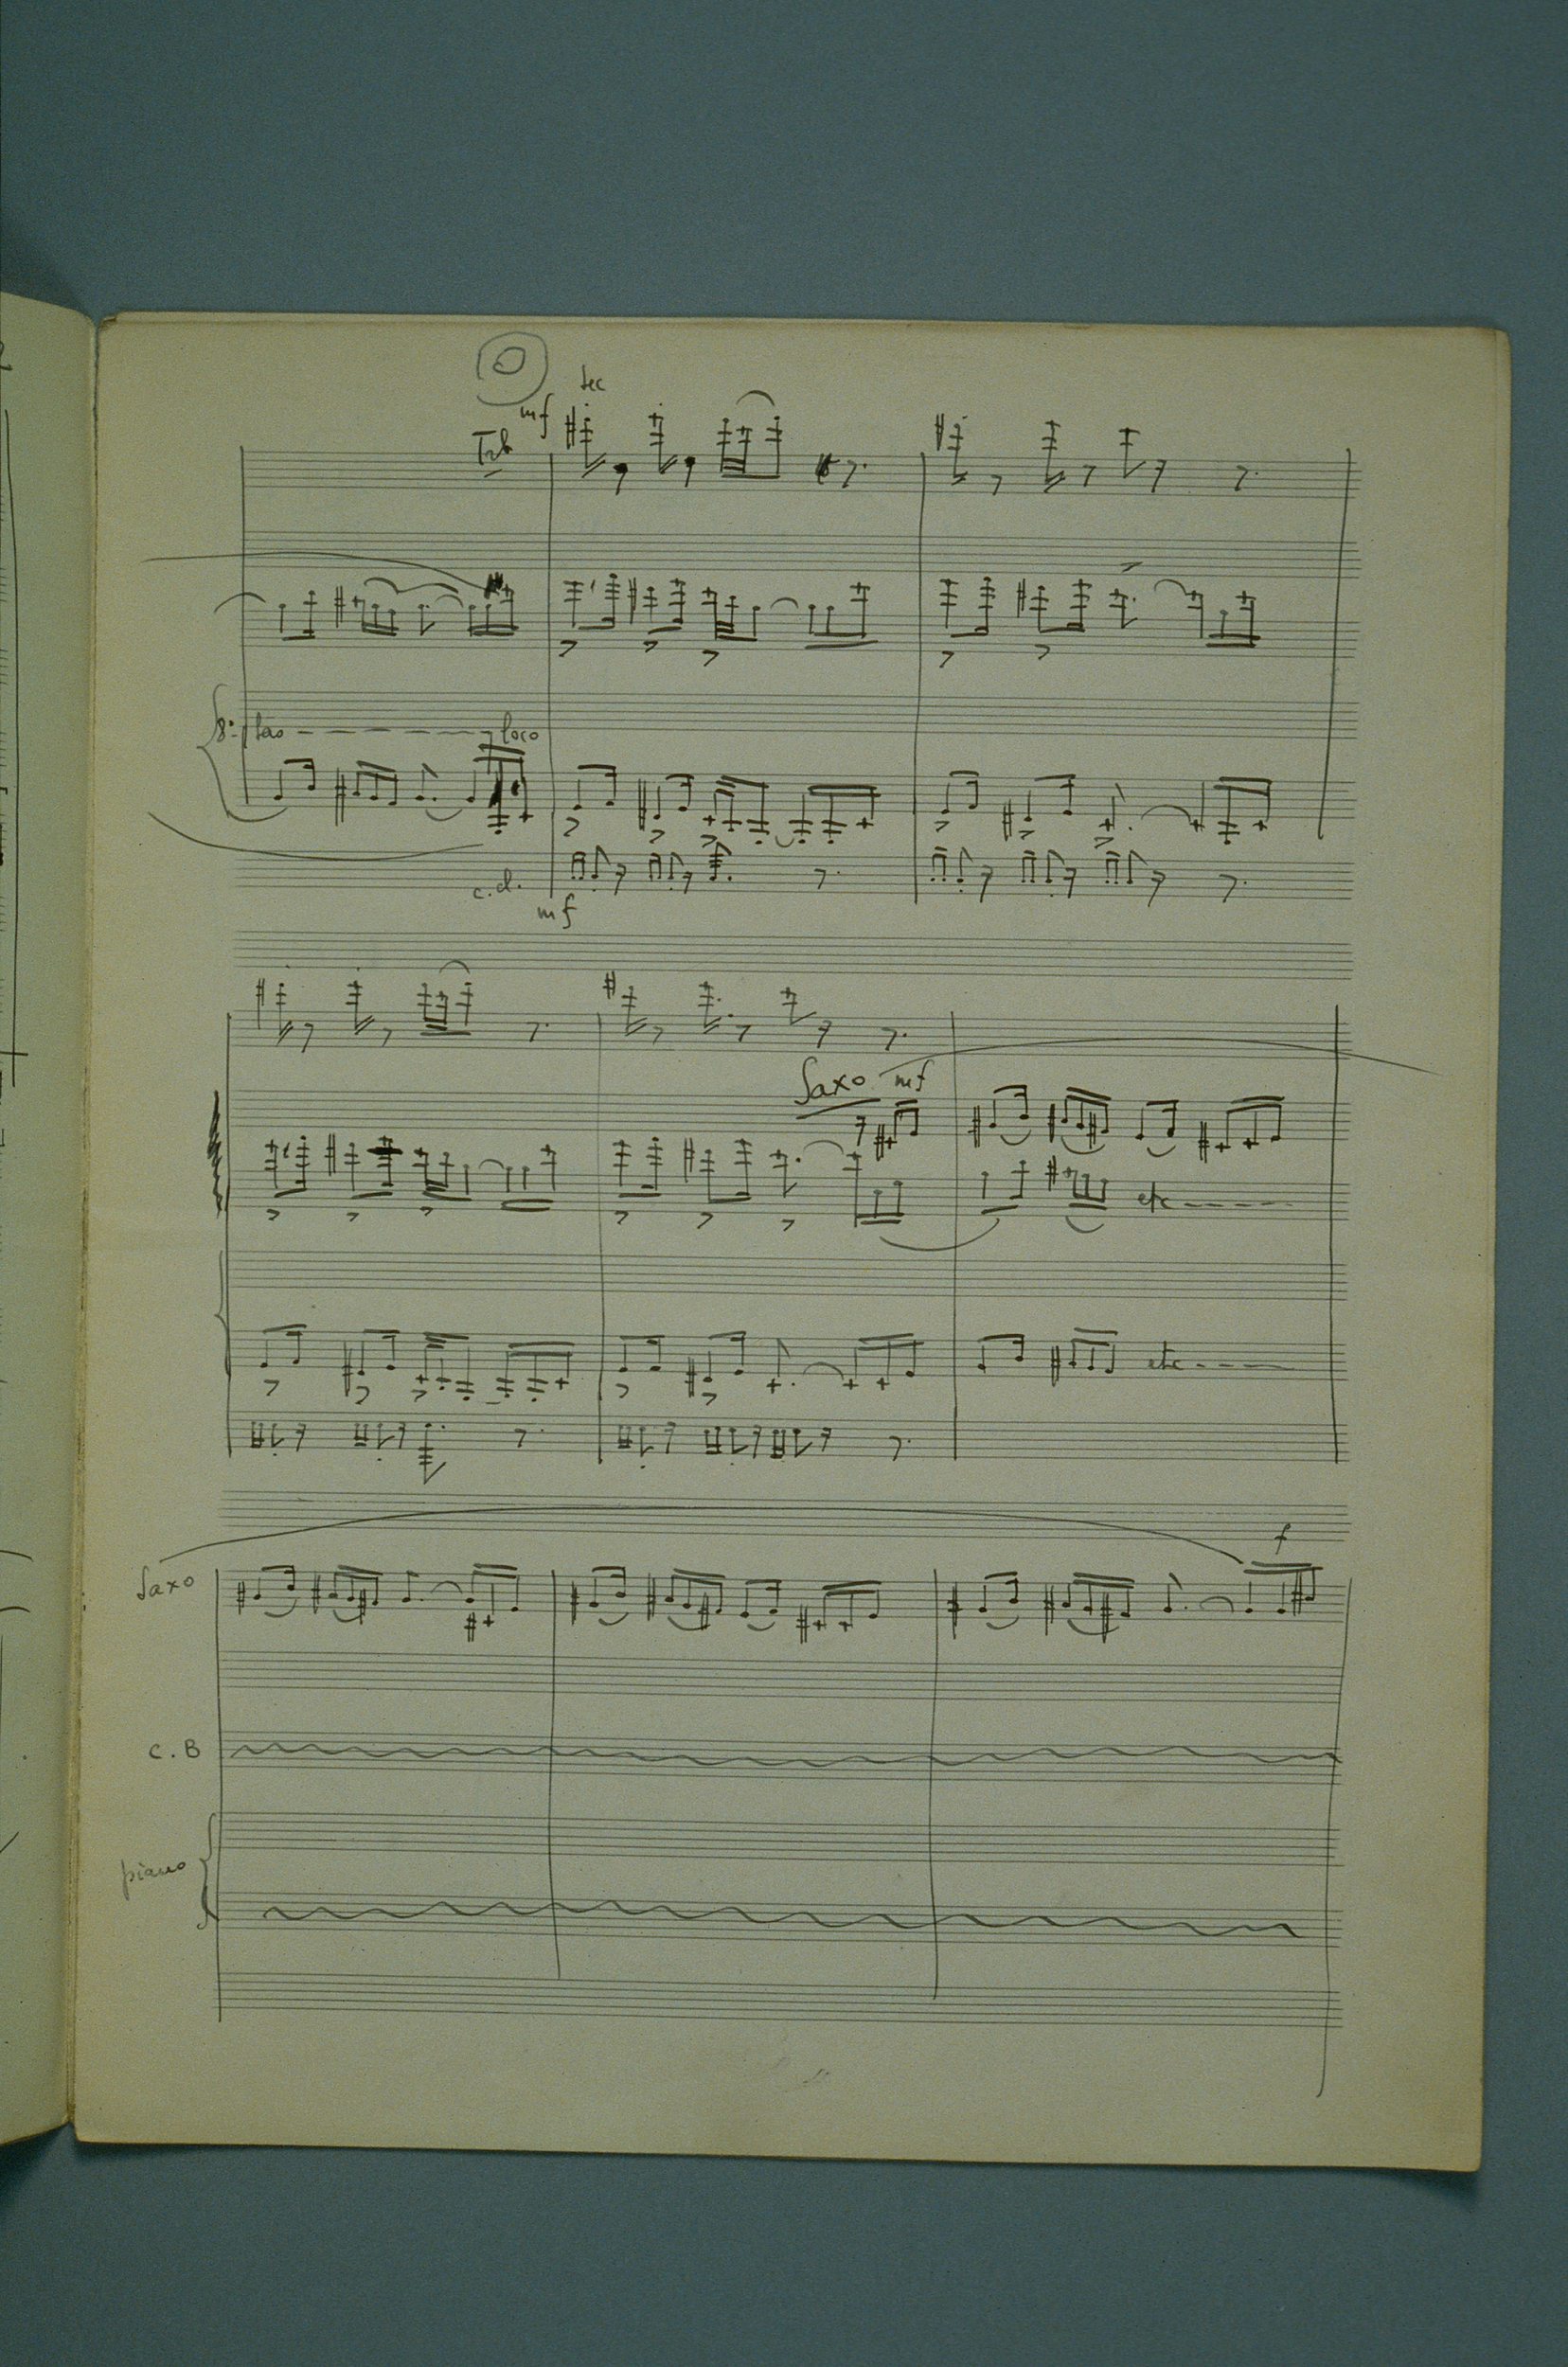 sec
mf
Trb
8: bas loco
c.d.
mf
Saxo mf
etc
etc
f
Saxo
C.B
piano